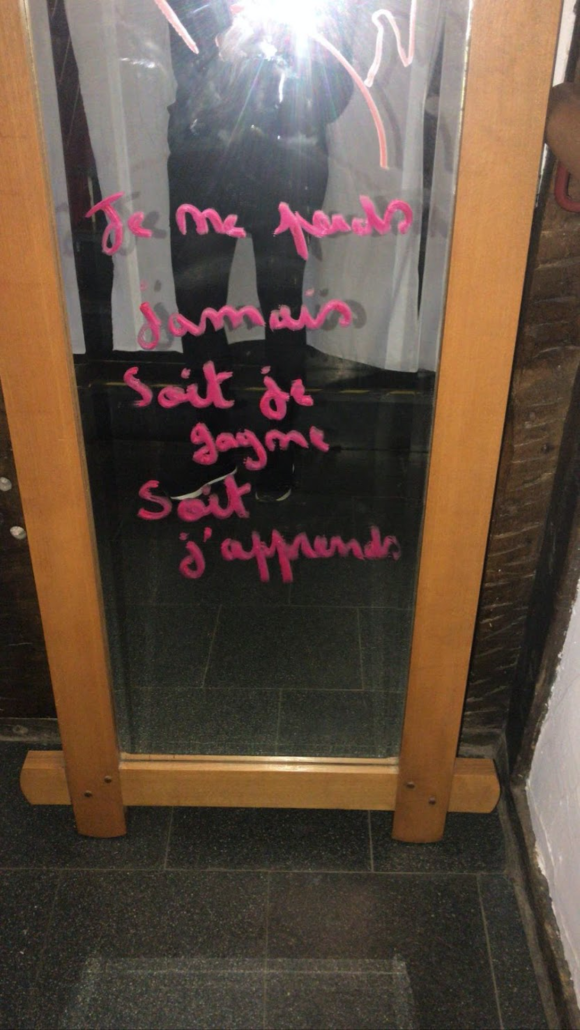 Je ne perds
jamais
Soit je
gagne
Soit
j'apprends